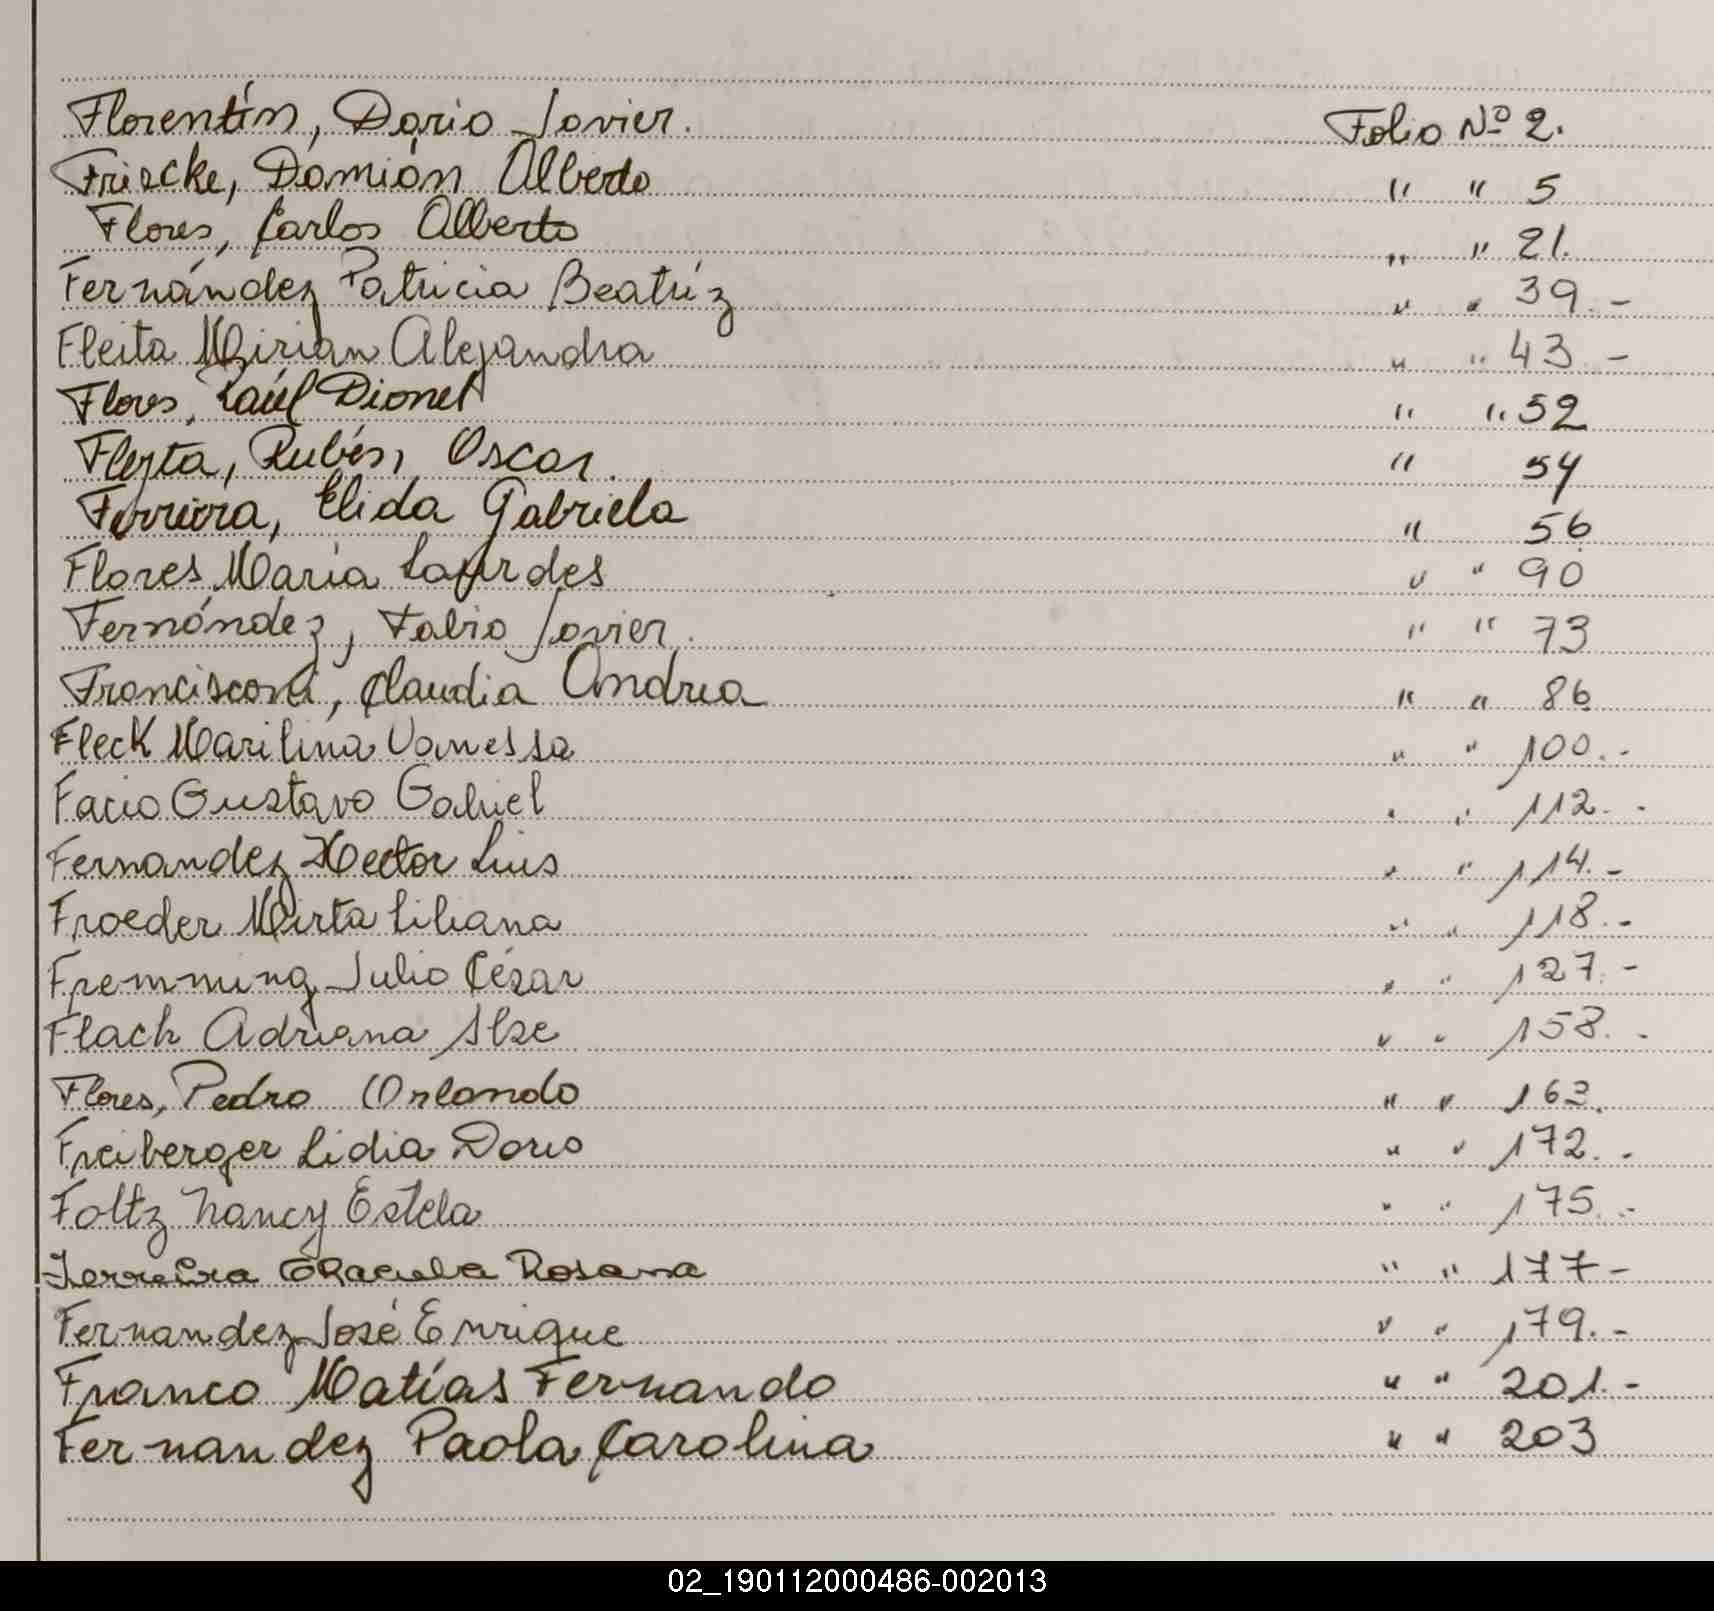 Florentín, Dario Javier. Folio Nº 2.
Friscke, Damián Alberto " " 5
Flores, Carlos Alberto " " 21.
Fernández Patricia Beatríz " " 39.-
Fleita Mirian Alejandra " " 43.-
Flores, Raúl Dionel " " 52
Fleyta, Rubén, Oscar. " 54
Ferreira, Elida Gabriela " 56
Flores María Lourdes " " 90
Fernández, Fabio Javier. " " 73
Francisconi, Claudia Andrea " " 86
Fleck Marilina Vanessa " " 100.-
Facio Gustavo Gabriel " " 112.-
Fernandez Hector Luis " " 114.-
Froeder Mirta Liliana " " 118.-
Fremming Julio César " " 127.-
Flach Adriana Ilse " " 158.-
Flores, Pedro Orlando " " 163.
Freiberger Lidia Doris " " 172.-
Foltz Nancy Estela " " 175.-
Ferreira Graciela Rosana " " 177-
Fernandez José Enrique " " 179.-
Franco Matías Fernando " " 201.-
Fernandez Paola Carolina " " 203
02_190112000486-002013